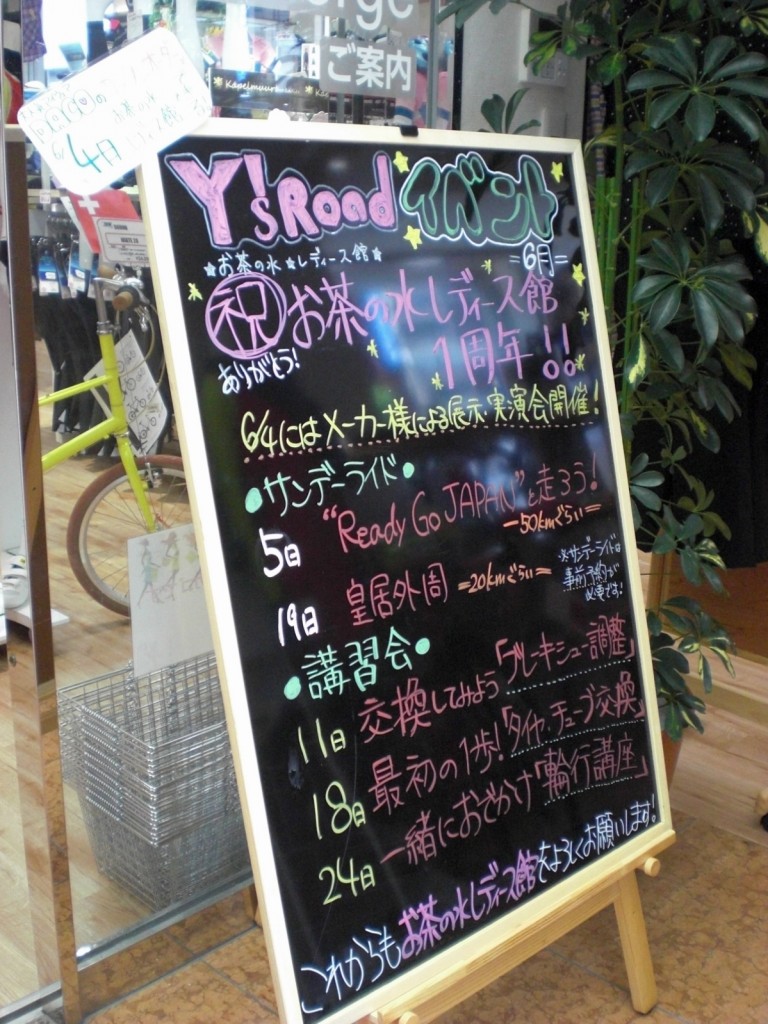 ご案内
Kapelmuur
4日
Y'sRoad イベント
★お茶の水★レディース館★
=6月=
祝 お茶の水レディース館
ありがとう!
1周年!!
6/4にはメーカー様による展示・実演会開催!
•サンデーライド•
5日 "Ready Go JAPAN"と走ろう!
-50kmぐらい=
19日 皇居外周 =20kmぐらい=
※サンデーライドは
事前予約が
必要です!
•講習会•
11日 交換してみよう「ブレーキシュー調整」
18日 最初の1歩!「タイヤ・チューブ交換」
24日 一緒におでかけ「輪行講座」
これからもお茶の水レディース館をよろしくお願いします!